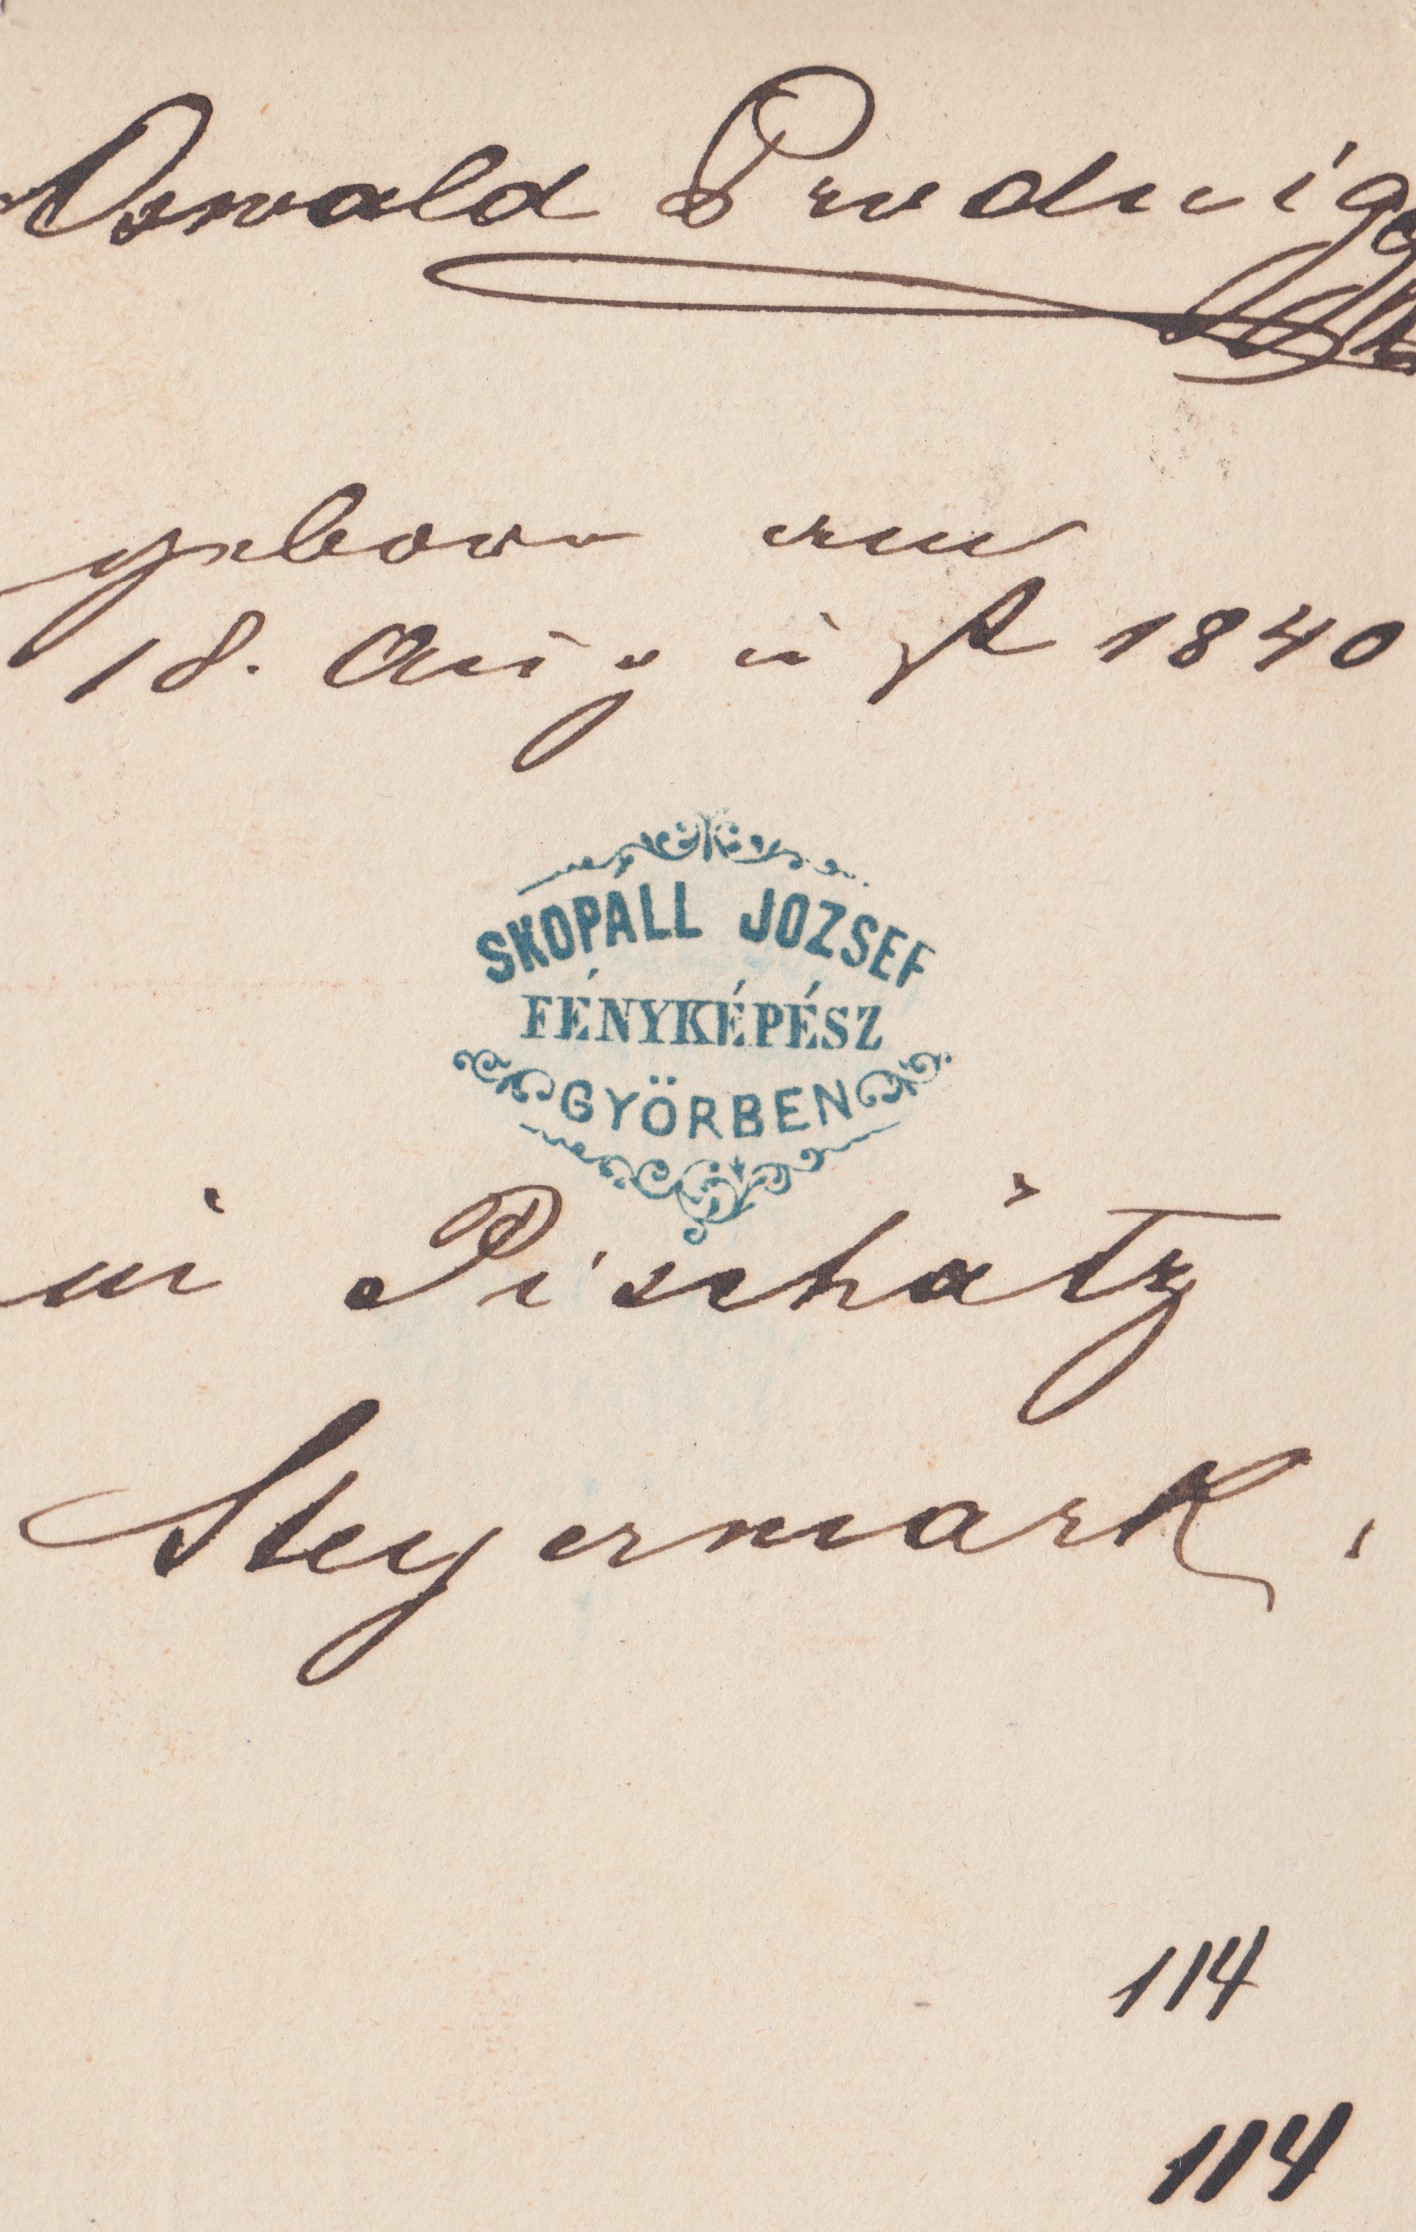 Oswald Prudwigg
geboren am
18. August 1840
SKOPÁLL JOZSEF
FÉNYKÉPÉSZ
GYÖRBEN
in Pischätz
Steyermark.
114
114